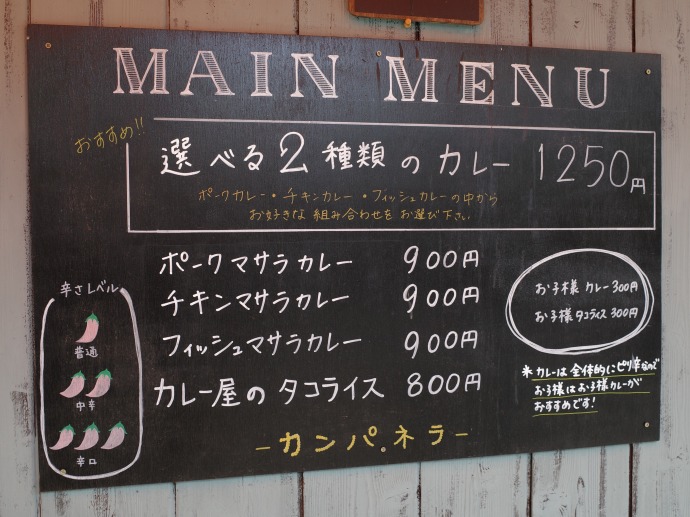 MAIN MENU
おすすめ!!
選べる2種類のカレー 1250円
ポークカレー・チキンカレー・フィッシュカレーの中から
お好きな組み合わせをお選び下さい
ポークマサラカレー 900円
チキンマサラカレー 900円
フィッシュマサラカレー 900円
カレー屋のタコライス 800円
-カンパネラ-
辛さレベル
普通
中辛
辛口
お子様カレー300円
お子様タコライス300円
*カレーは全体的にピリ辛なので
お子様はお子様カレーが
おすすめです!